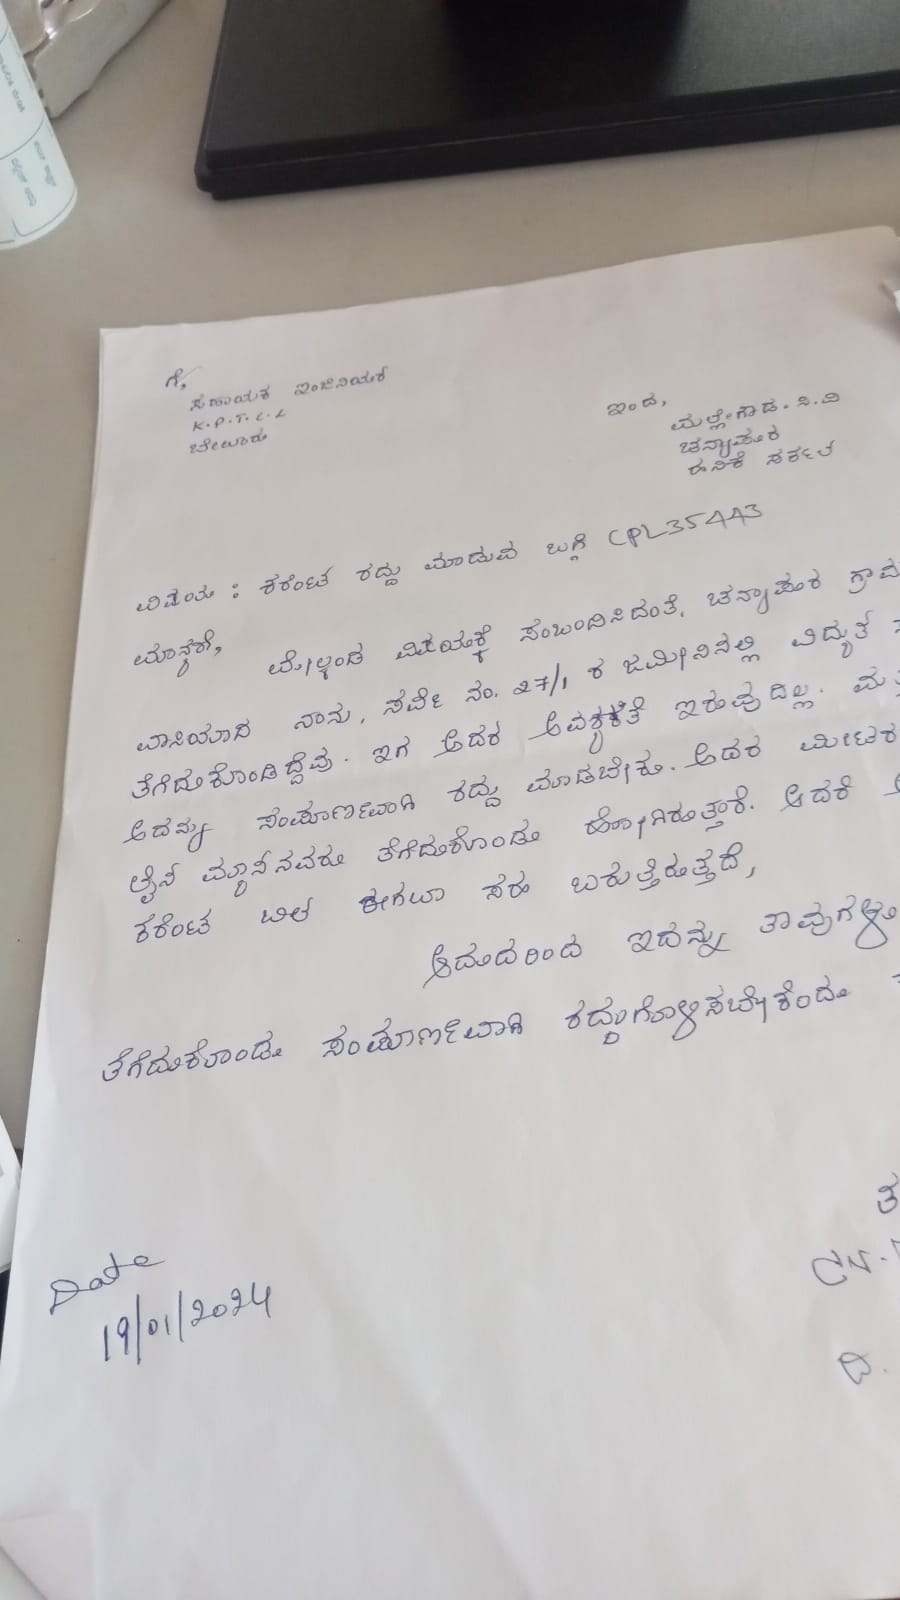 ಗೆ,
ಸಹಾಯಕ ಇಂಜಿನಿಯರ
K.P.T.C.L
ಬೇಲೂರು
ಇಂದ,
ಮಲ್ಲೇಗೌಡ. ಸಿ.ವಿ
ಚನ್ನಾಪೂರ
ವಿಷಯ : ಕರೆಂಟ ರದ್ದು ಮಾಡುವ ಬಗ್ಗೆ CPL35443
ಮಾನ್ಯರೇ,
ಮೇಲ್ಕಂಡ ವಿಷಯಕ್ಕೆ ಸಂಬಂದಿಸಿದಂತೆ, ಚನ್ನಾಪೂರ ಗ್ರಾಮ
ವಾಸಿಯಾದ ನಾನು, ಸರ್ವೆ ನಂ. 27/1 ರ ಜಮೀನಿನಲ್ಲಿ ವಿದ್ಯುತ
ತೆಗೆದುಕೊಂಡಿದ್ದೆವು. ಇಗ ಅದರ ಅವಶ್ಯಕತೆ ಇರುವುದಿಲ್ಲ.
ಅದನ್ನು ಸಂಪೂರ್ಣವಾಗಿ ರದ್ದು ಮಾಡಬೇಕು. ಅದರ ಮೀಟರ
ಲೈನ ಮ್ಯಾನನವರು ತೆಗೆದುಕೊಂಡು ಹೋಗಿರುತ್ತಾರೆ. ಆದರೆ
ಕರೆಂಟ ಬಿಲ ಈಗಲೂ ಸಹ ಬರುತ್ತಿರುತ್ತದೆ,
ಆದುದರಿಂದ ಇದನ್ನು ತಾವುಗಳು
ತೆಗೆದುಕೊಂಡು ಸಂಪೂರ್ಣವಾಗಿ ರದ್ದುಗೊಳಿಸಬೇಕೆಂದು
Date
19/01/2024